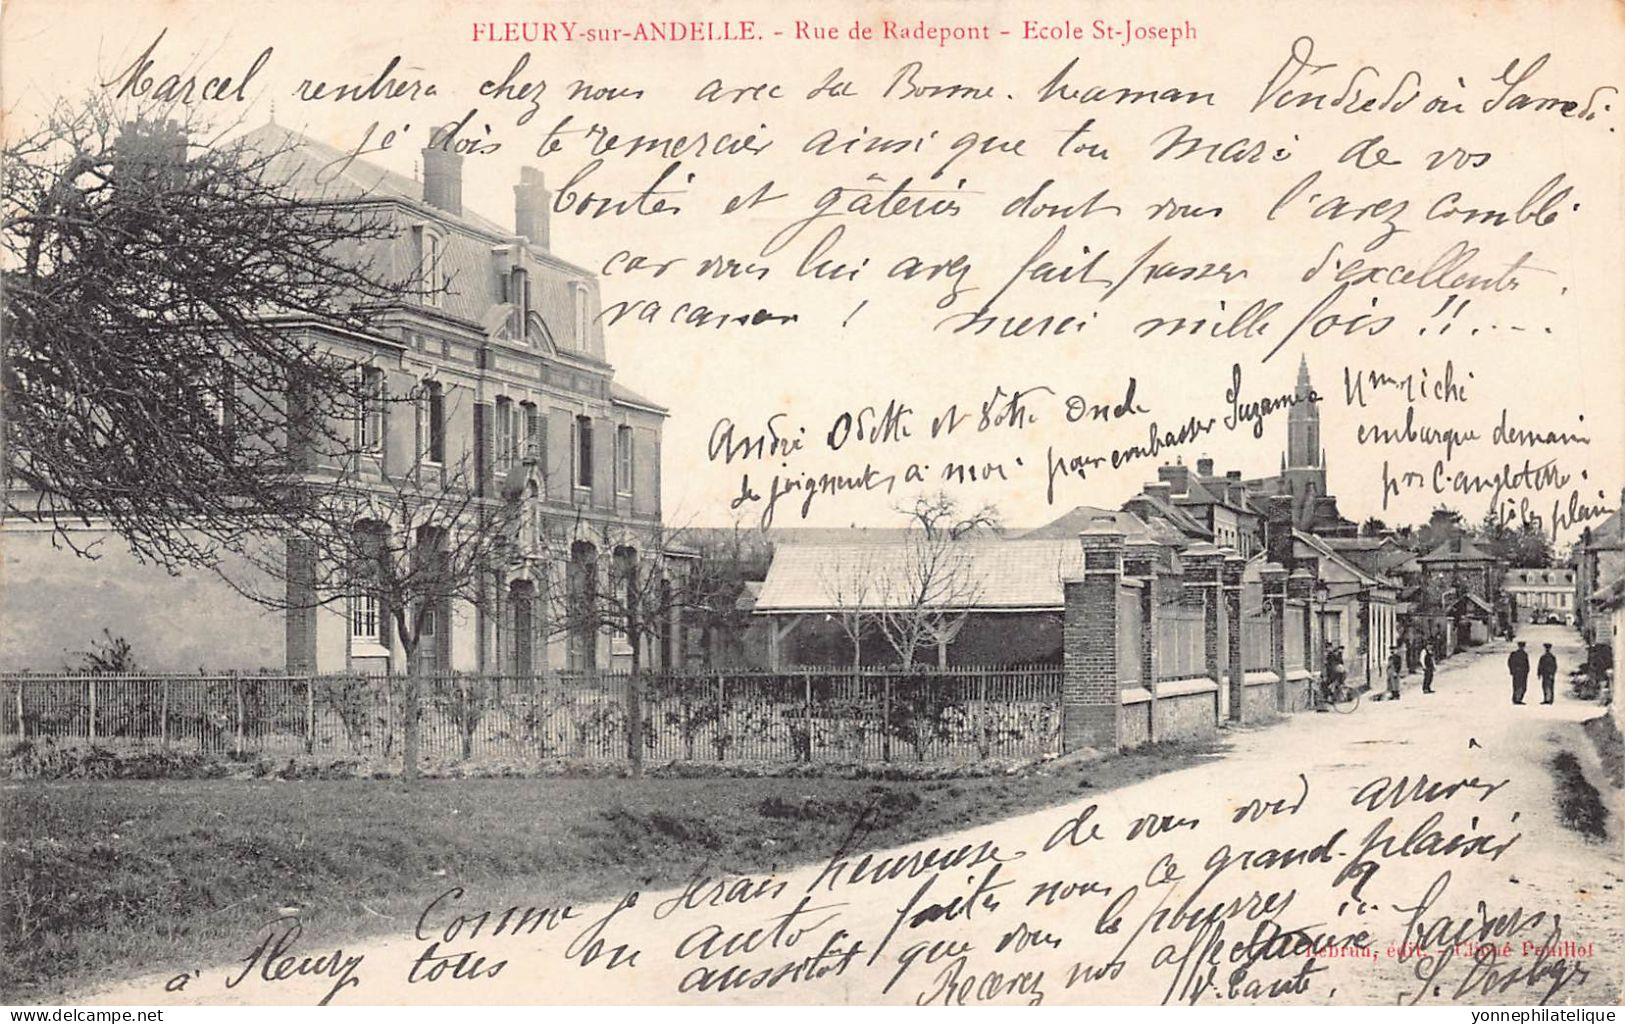 FLEURY-sur-ANDELLE. - Rue de Radepont - Ecole St-Joseph
Marcel rentrera chez nous avec sa Bonne. Maman Vendredi où Samedi.
je dois te remercier ainsi que ton Mari de vos
bontés et gâteries dont vous l'avez comblé
car vous lui avez fait passer d'excellentes
vacances ! Merci mille fois !!....
André Odette et votre Oncle
se joignent à moi pour embrasser Suzanne
embarque demain
pr l'angleterre.
plain
Comme je serais heureuse de vous voir arriver
à Fleury tous en auto. faites nous ce grand plaisir
aussitôt que vous le pourrez !!
Recevez nos affectueux baisers
V. tante.
Lebrun, édit. - Cliché Peuillot
www.delcampe.net
yonnephilatelique